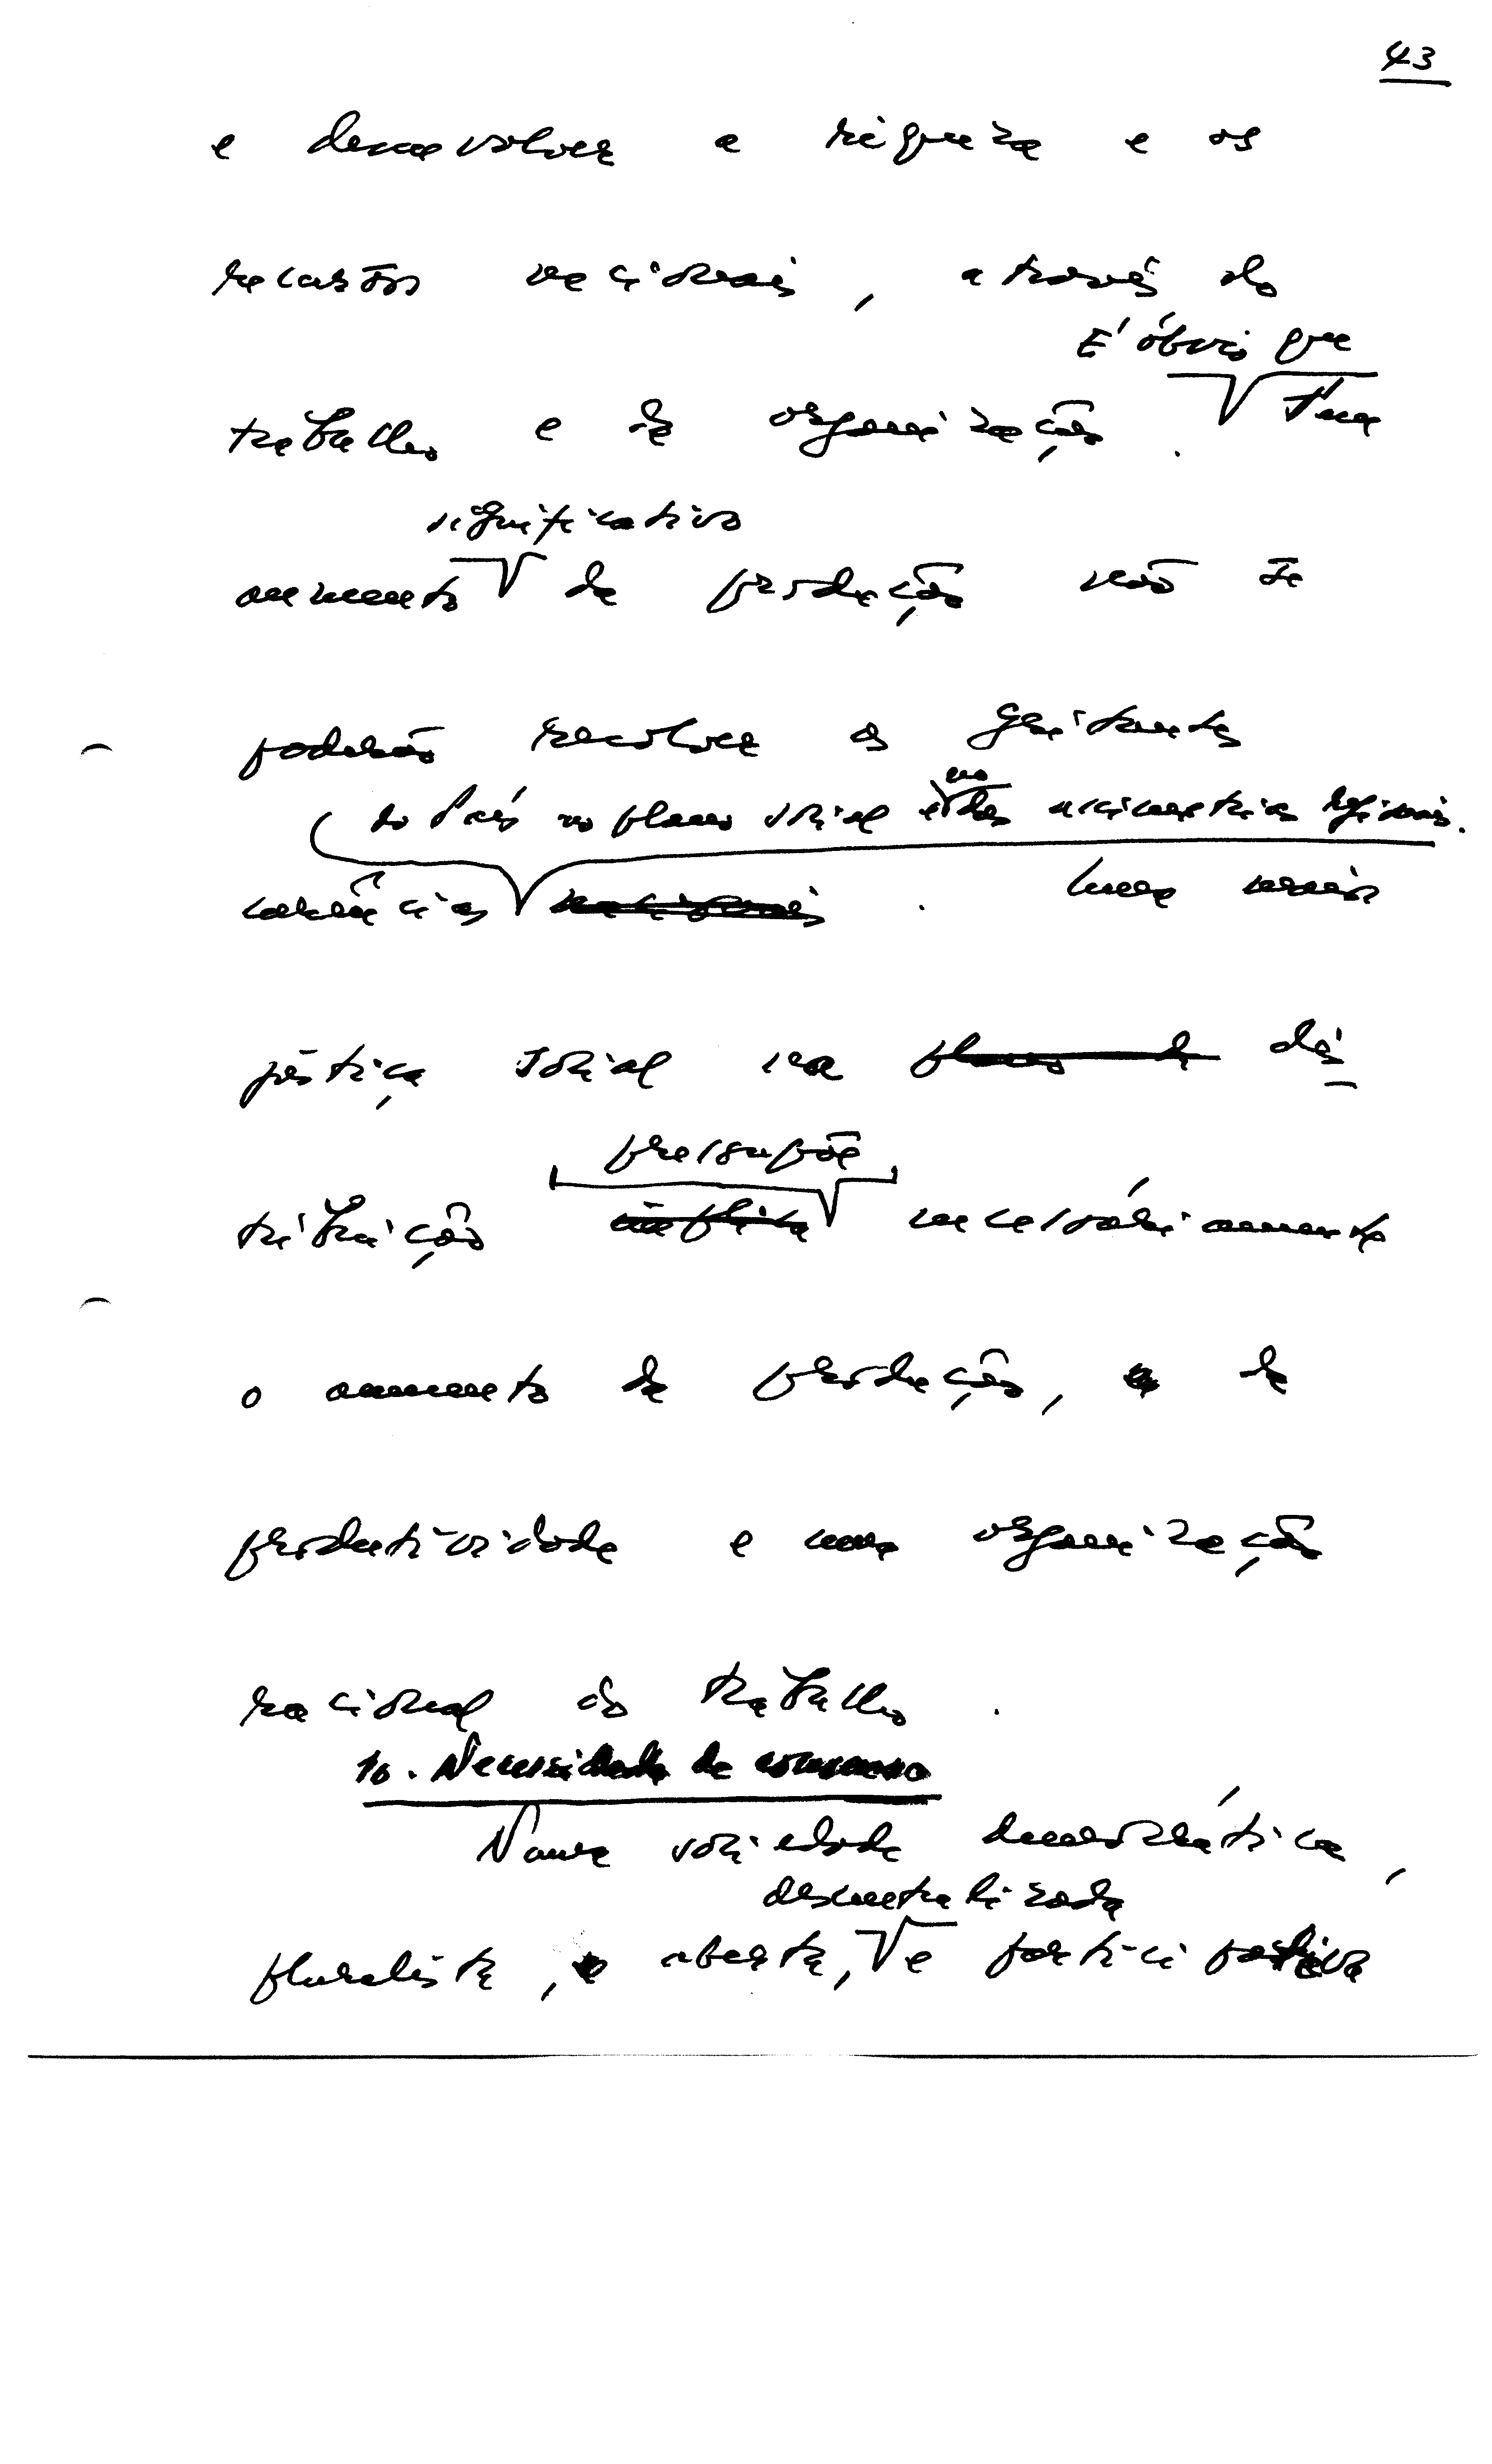 43
e desenvolver a riqueza e os
recursos nacionais, através do
É óbvio que
trabalho e da organização. Sem
significativo
aumento da produção não se
poderão resolver as gritantes
do País no plano social e no das assimetrias regionais.
carências nacionais. Uma maior
justiça social na plano da dis-
pressupõe
tribuição implica necessáriamente
o aumento da produção, da
productividade e uma organização
racional do trabalho.
10. Necessidade de consenso
Numa sociedade democrática,
descentralizada
pluralista, aberta, e participativa